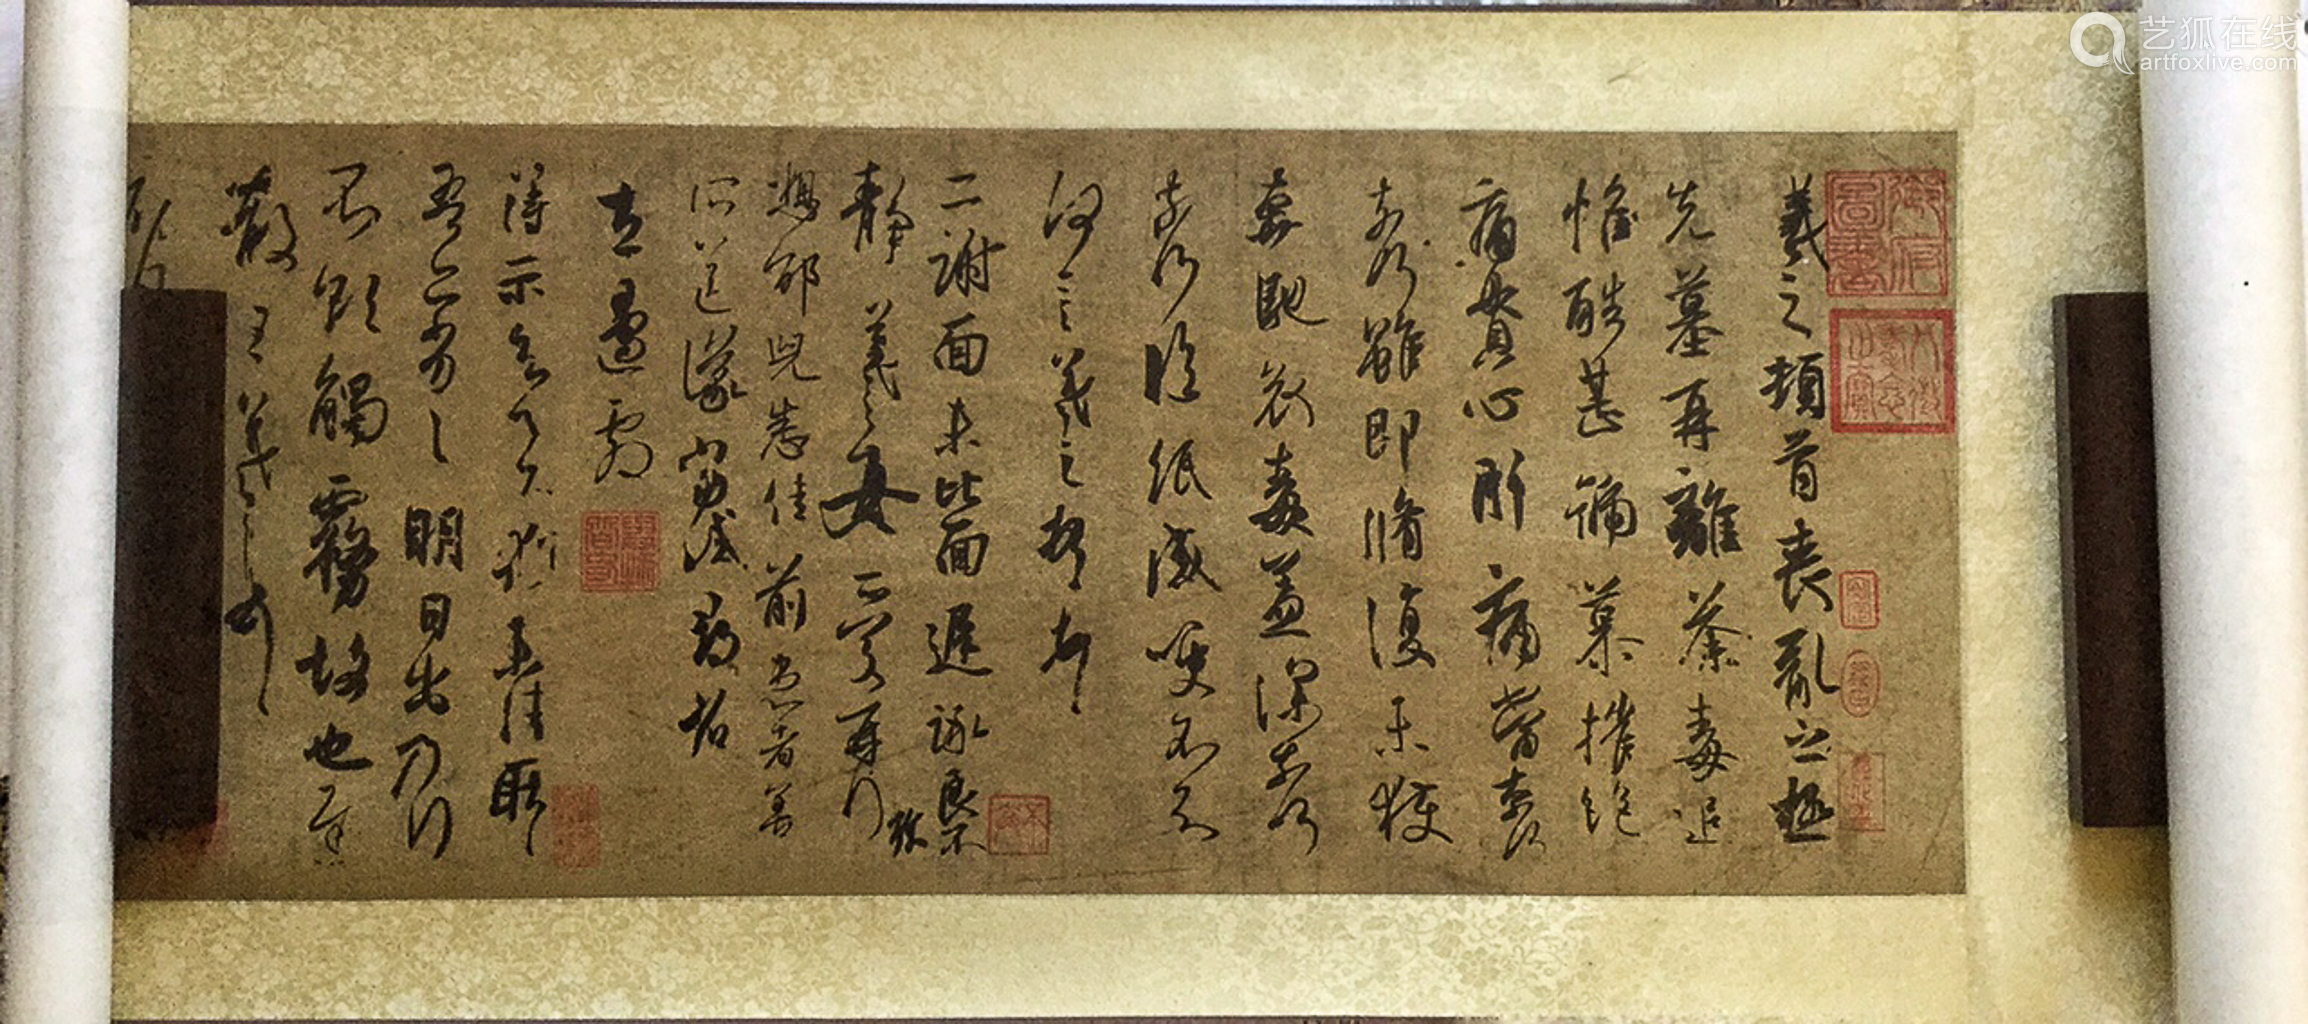 羲之頓首喪亂之極
先墓再離荼毒追
惟酷甚號慕摧絕
痛貫心肝痛當奈何
奈何雖即脩復未獲
奔馳哀毒益深奈何
奈何臨紙感哽不知
何言羲之頓首頓首
二謝面未比面遲詠良不
靜羲之女愛再拜
想邵兒悉佳前患者善
所送議當試尋省
左邊劇
得示知足下猶未佳耿耿
吾亦劣劣明日出乃行
不欲觸霧故也遲
散王羲之頓首
艺狐在线
artfoxlive.com